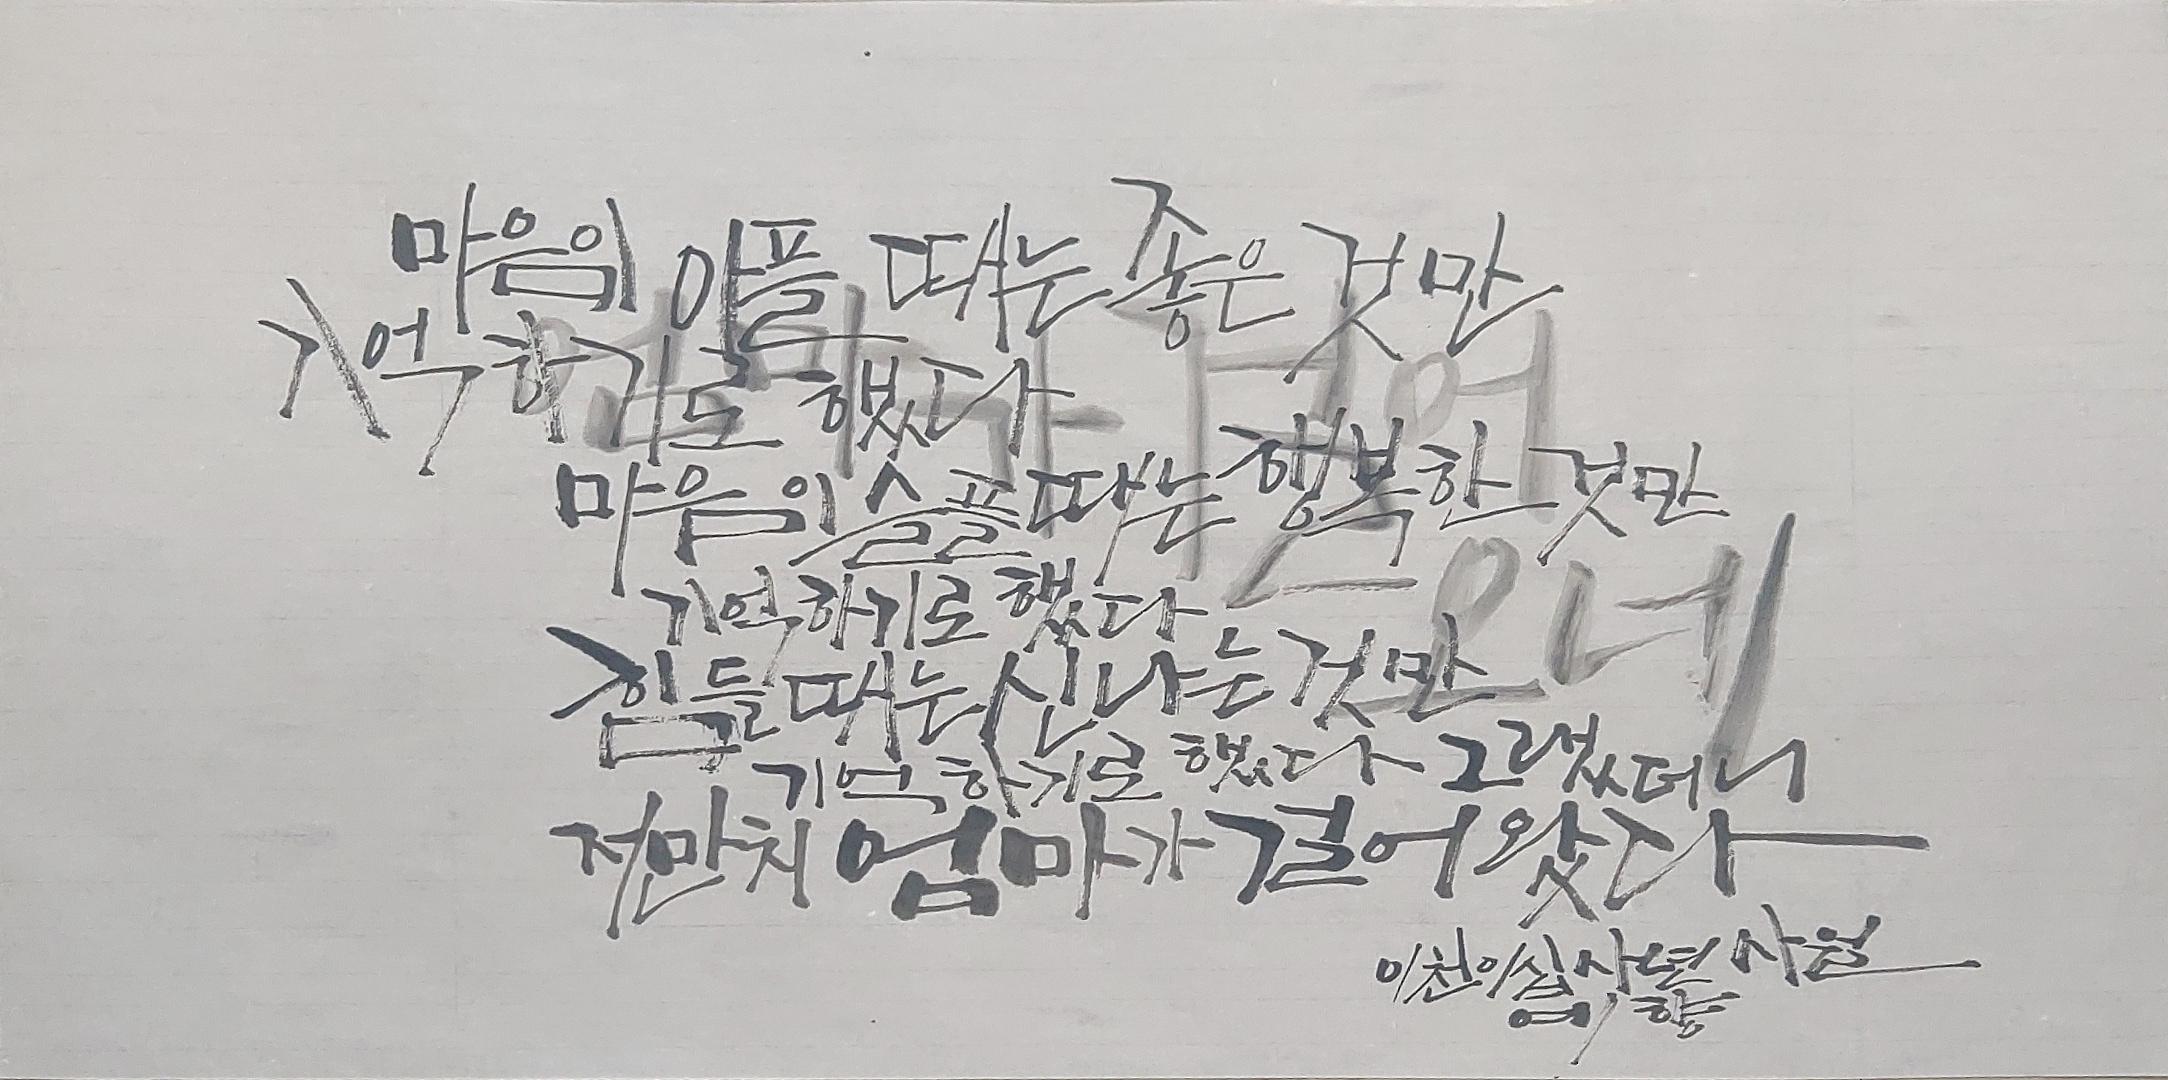 마음이 아플 때는 좋은 것만
기억하기로 했다
마음이 슬플 때는 행복한 것만
기억하기로 했다
힘들 때는 신나는 것만
기억하기로 했다 그랬더니
저만치 엄마가 걸어왔다
이천이십사년 사월
엄마가 걸어
오네